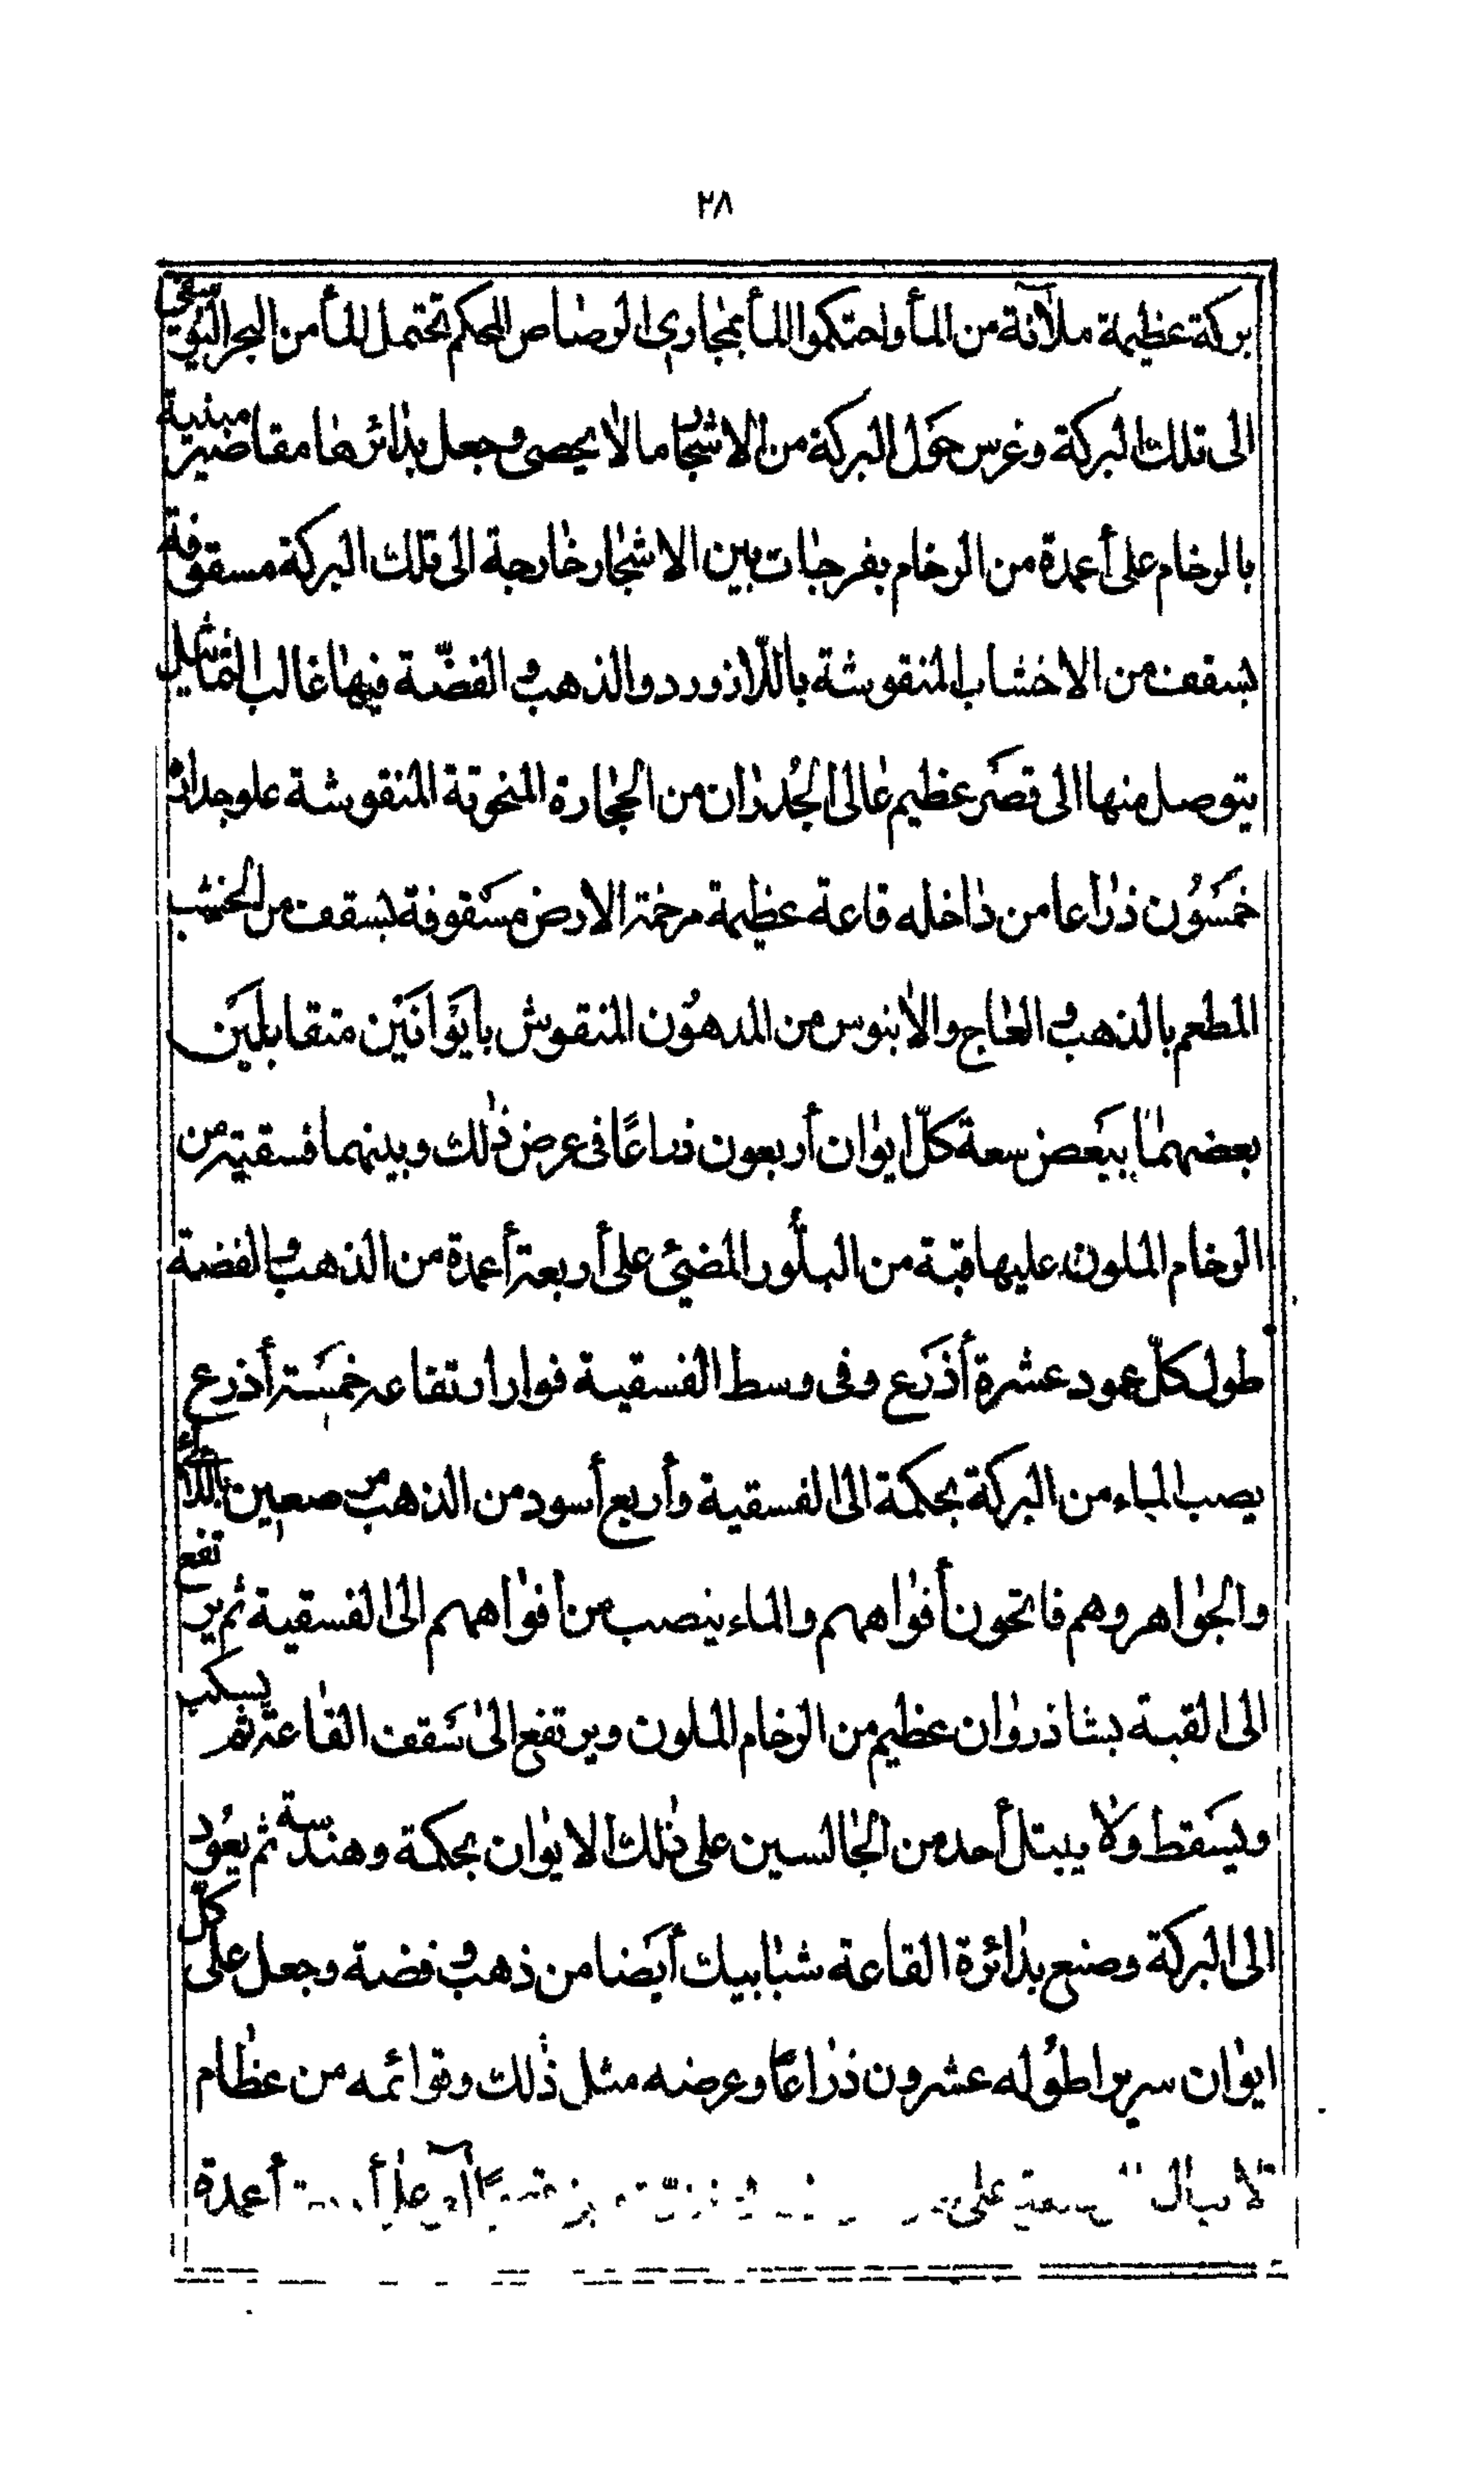 ٢٨
بركة عظيمة ملآنة من المأ واحتكموا المأ بمجارى الرصاص المحكم تحتمل المأ من البحر
الى تلك البركة وغرس حَول البركة من الاشجار ما لا يحصى وجعل بدائرها مقاصير مبنية
بالرخام على أعمدة من الرخام بفرجات بين الاشجار خارجة الى تلك البركة مسقوفة
بسقف من الاخشاب المنقوشة باللّازورد والذهب والفضّة فيها غالب التماثيل
يتوصل منها الى قصَر عظيم عالى الجُدران من الحجارة المنحوتة المنقوشة علو جدرانه
خمسَوُن ذراعا من داخله قاعة عظيمة مرخمة الارض مسَقوفة بسقف من الخشب
المطعم بالذهب والعاج والابنوس من المدهوُن المنقوش بايَوانَيَن متقابلَيَن
بعضهما ببَعض سعة كلّ ايوان أربعون ذراعًا فى عرض ذلك وبينهما فسقية من
الرخام الملون عليها قبة من البلُّور المضيئ على أربعة أعمدة من الذهب والفضة
طول كلّ عمود عشرة أذرَع وفى وسط الفسقية فوار ارتفاعه خمسَة أذرع
يصب الماء من البركة بحكمة الى الفسقية وأربع أسود من الذهب مرصعين
والجواهر وهم فاتحون أفواههم والماء ينصب من أفواههم الى الفسقية ثم يرتفع
الى القبة بشاذروان عظيم من الرخام الملون ويرتفع الى سَقف القاعة ثم يسكب
ويسَقط ولا يبتل أحد من الجالسين على ذلك الايوان بحكمة وهندسة ثم يعوُد
الى البركة وصنع بدائرة القاعة شبابيك أيَضا من ذهب وفضة وجعل على كلّ
ايوان سريرا طوُله عشرون ذراعًا وعرضه مثل ذلك وقوائمه من عظام
أعمدة